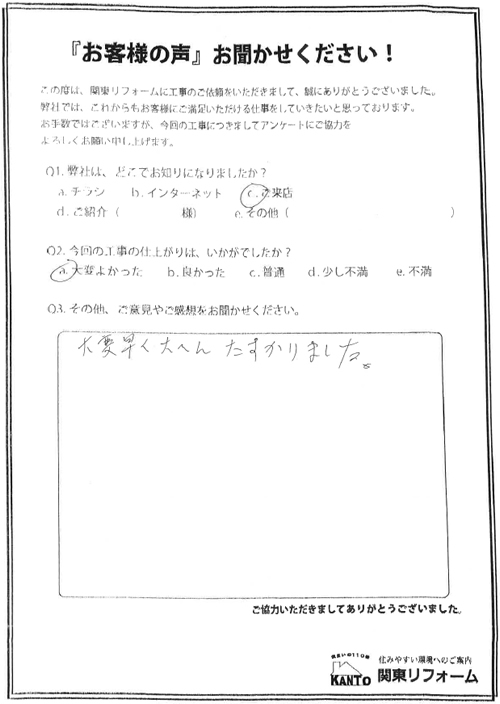 『お客様の声』お聞かせください！
この度は、関東リフォームに工事のご依頼をいただきまして、誠にありがとうございました。
弊社では、これからもお客様にご満足いただける仕事をしていきたいと思っております。
お手数ではございますが、今回の工事につきましてアンケートにご協力を
よろしくお願い申し上げます。
Q1. 弊社は、どこでお知りになりましたか？
a. チラシ b. インターネット c. ご来店
d. ご紹介（ 様） e. その他（ ）
Q2. 今回の工事の仕上がりは、いかがでしたか？
a. 大変よかった b. 良かった c. 普通 d. 少し不満 e. 不満
Q3. その他、ご意見やご感想をお聞かせください。
大変早く大へん たすかりました。
ご協力いただきましてありがとうございました。
住まいの110番
KANTO
住みやすい環境へのご案内
関東リフォーム